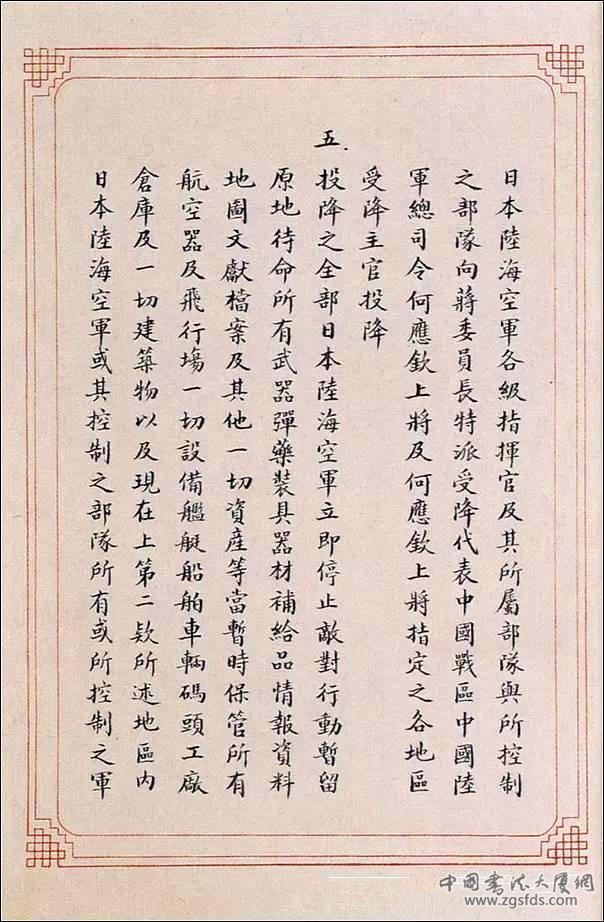 日本陸海空軍各級指揮官及其所屬部隊與所控制
之部隊向蔣委員長特派受降代表中國戰區中國陸
軍總司令何應欽上將及何應欽上將指定之各地區
受降主官投降
五.
投降之全部日本陸海空軍立即停止敵對行動暫留
原地待命所有武器彈藥裝具器材補給品情報資料
地圖文獻檔案及其他一切資產等當暫時保管所有
航空器及飛行場一切設備艦艇船舶車輛碼頭工廠
倉庫及一切建築物以及現在上第二欵所述地區內
日本陸海空軍或其控制之部隊所有或所控制之軍
中國書法大廈網
www.zgsfds.com